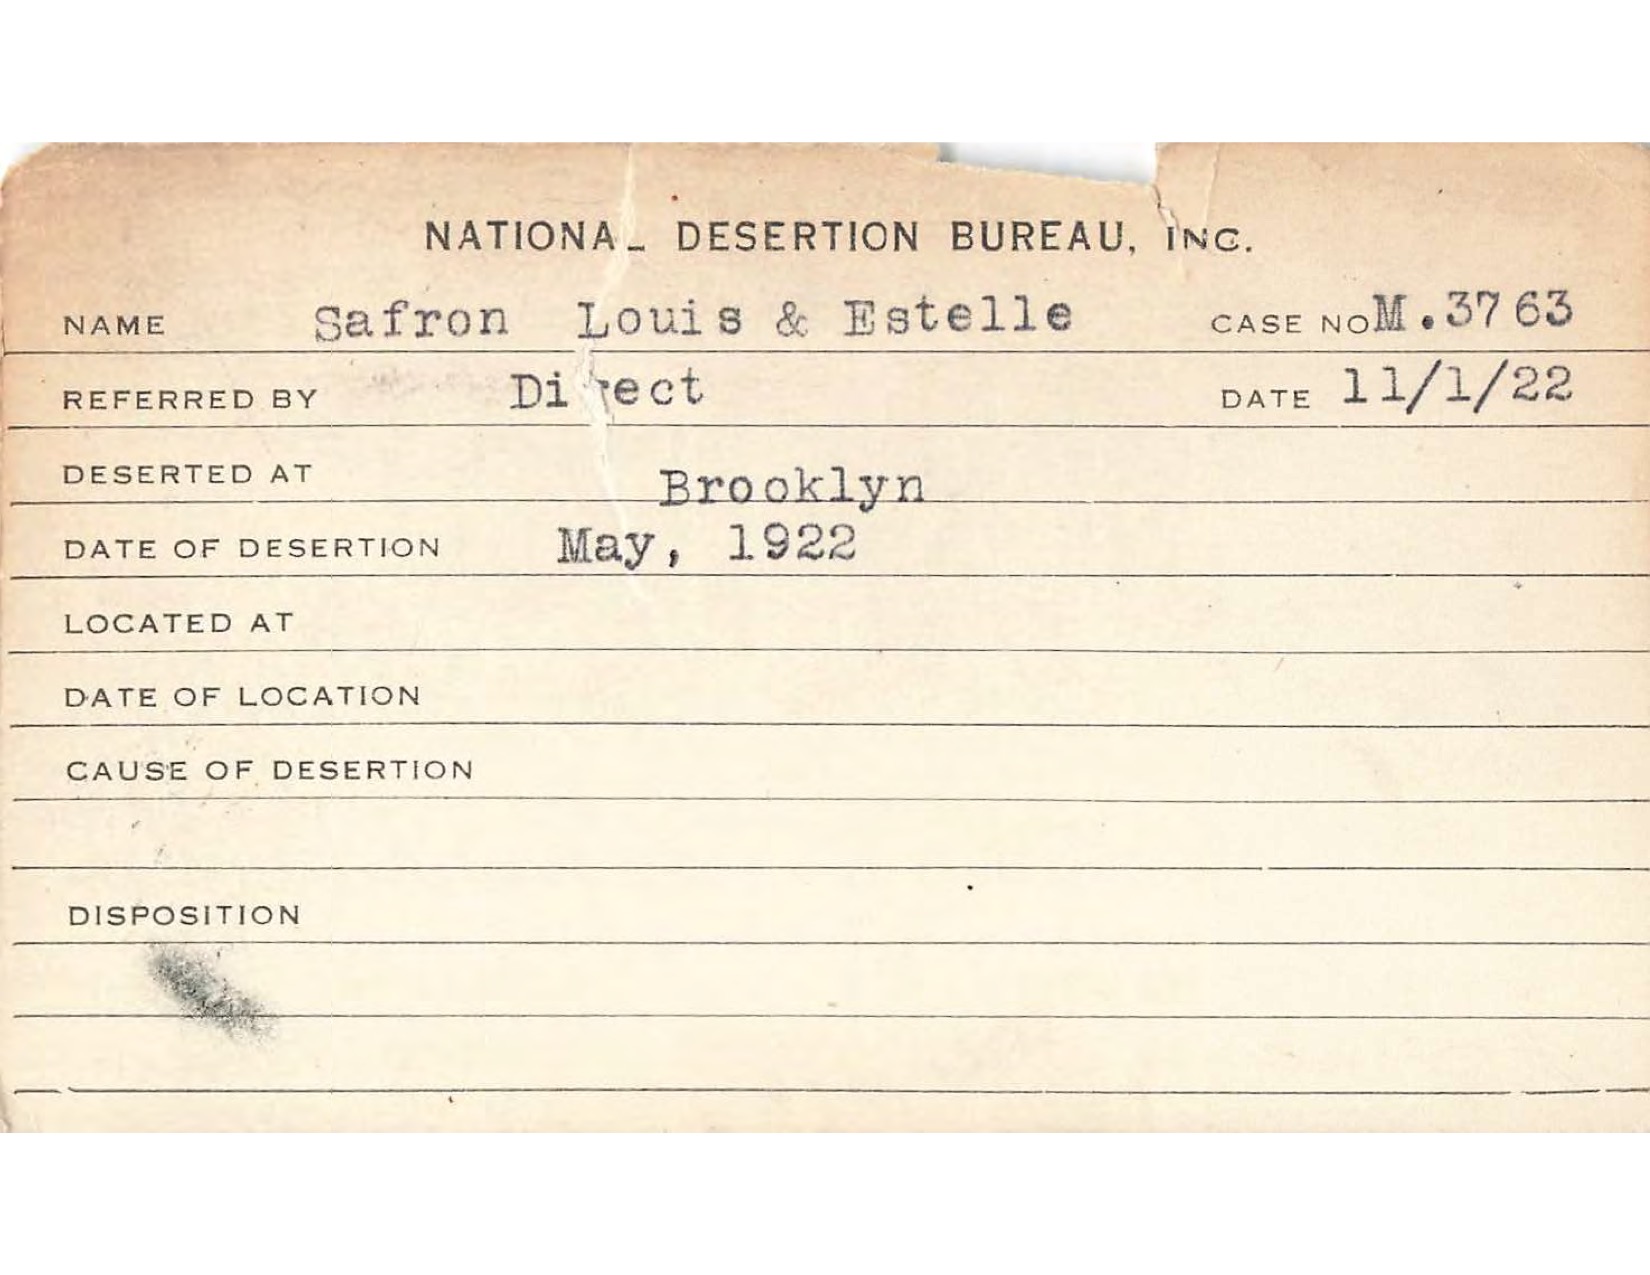 NATIONAL DESERTION BUREAU, INC.
NAME Safron Louis & Estelle CASE NO M.3763
REFERRED BY Direct DATE 11/1/22
DESERTED AT Brooklyn
DATE OF DESERTION May, 1922
LOCATED AT
DATE OF LOCATION
CAUSE OF DESERTION
DISPOSITION